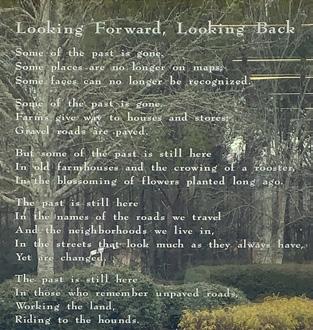 Looking Forward, Looking Back
Some of the past is gone.
Some places are no longer on maps;
Some faces can no longer be recognized.
Some of the past is gone.
Farms give way to houses and stores;
Gravel roads are paved.
But some of the past is still here
In old farmhouses and the crowing of a rooster,
In the blossoming of flowers planted long ago.
The past is still here
In the names of the roads we travel
And the neighborhoods we live in,
In the streets that look much as they always have,
Yet are changed.
The past is still here
In those who remember unpaved roads,
Working the land,
Riding to the hounds.